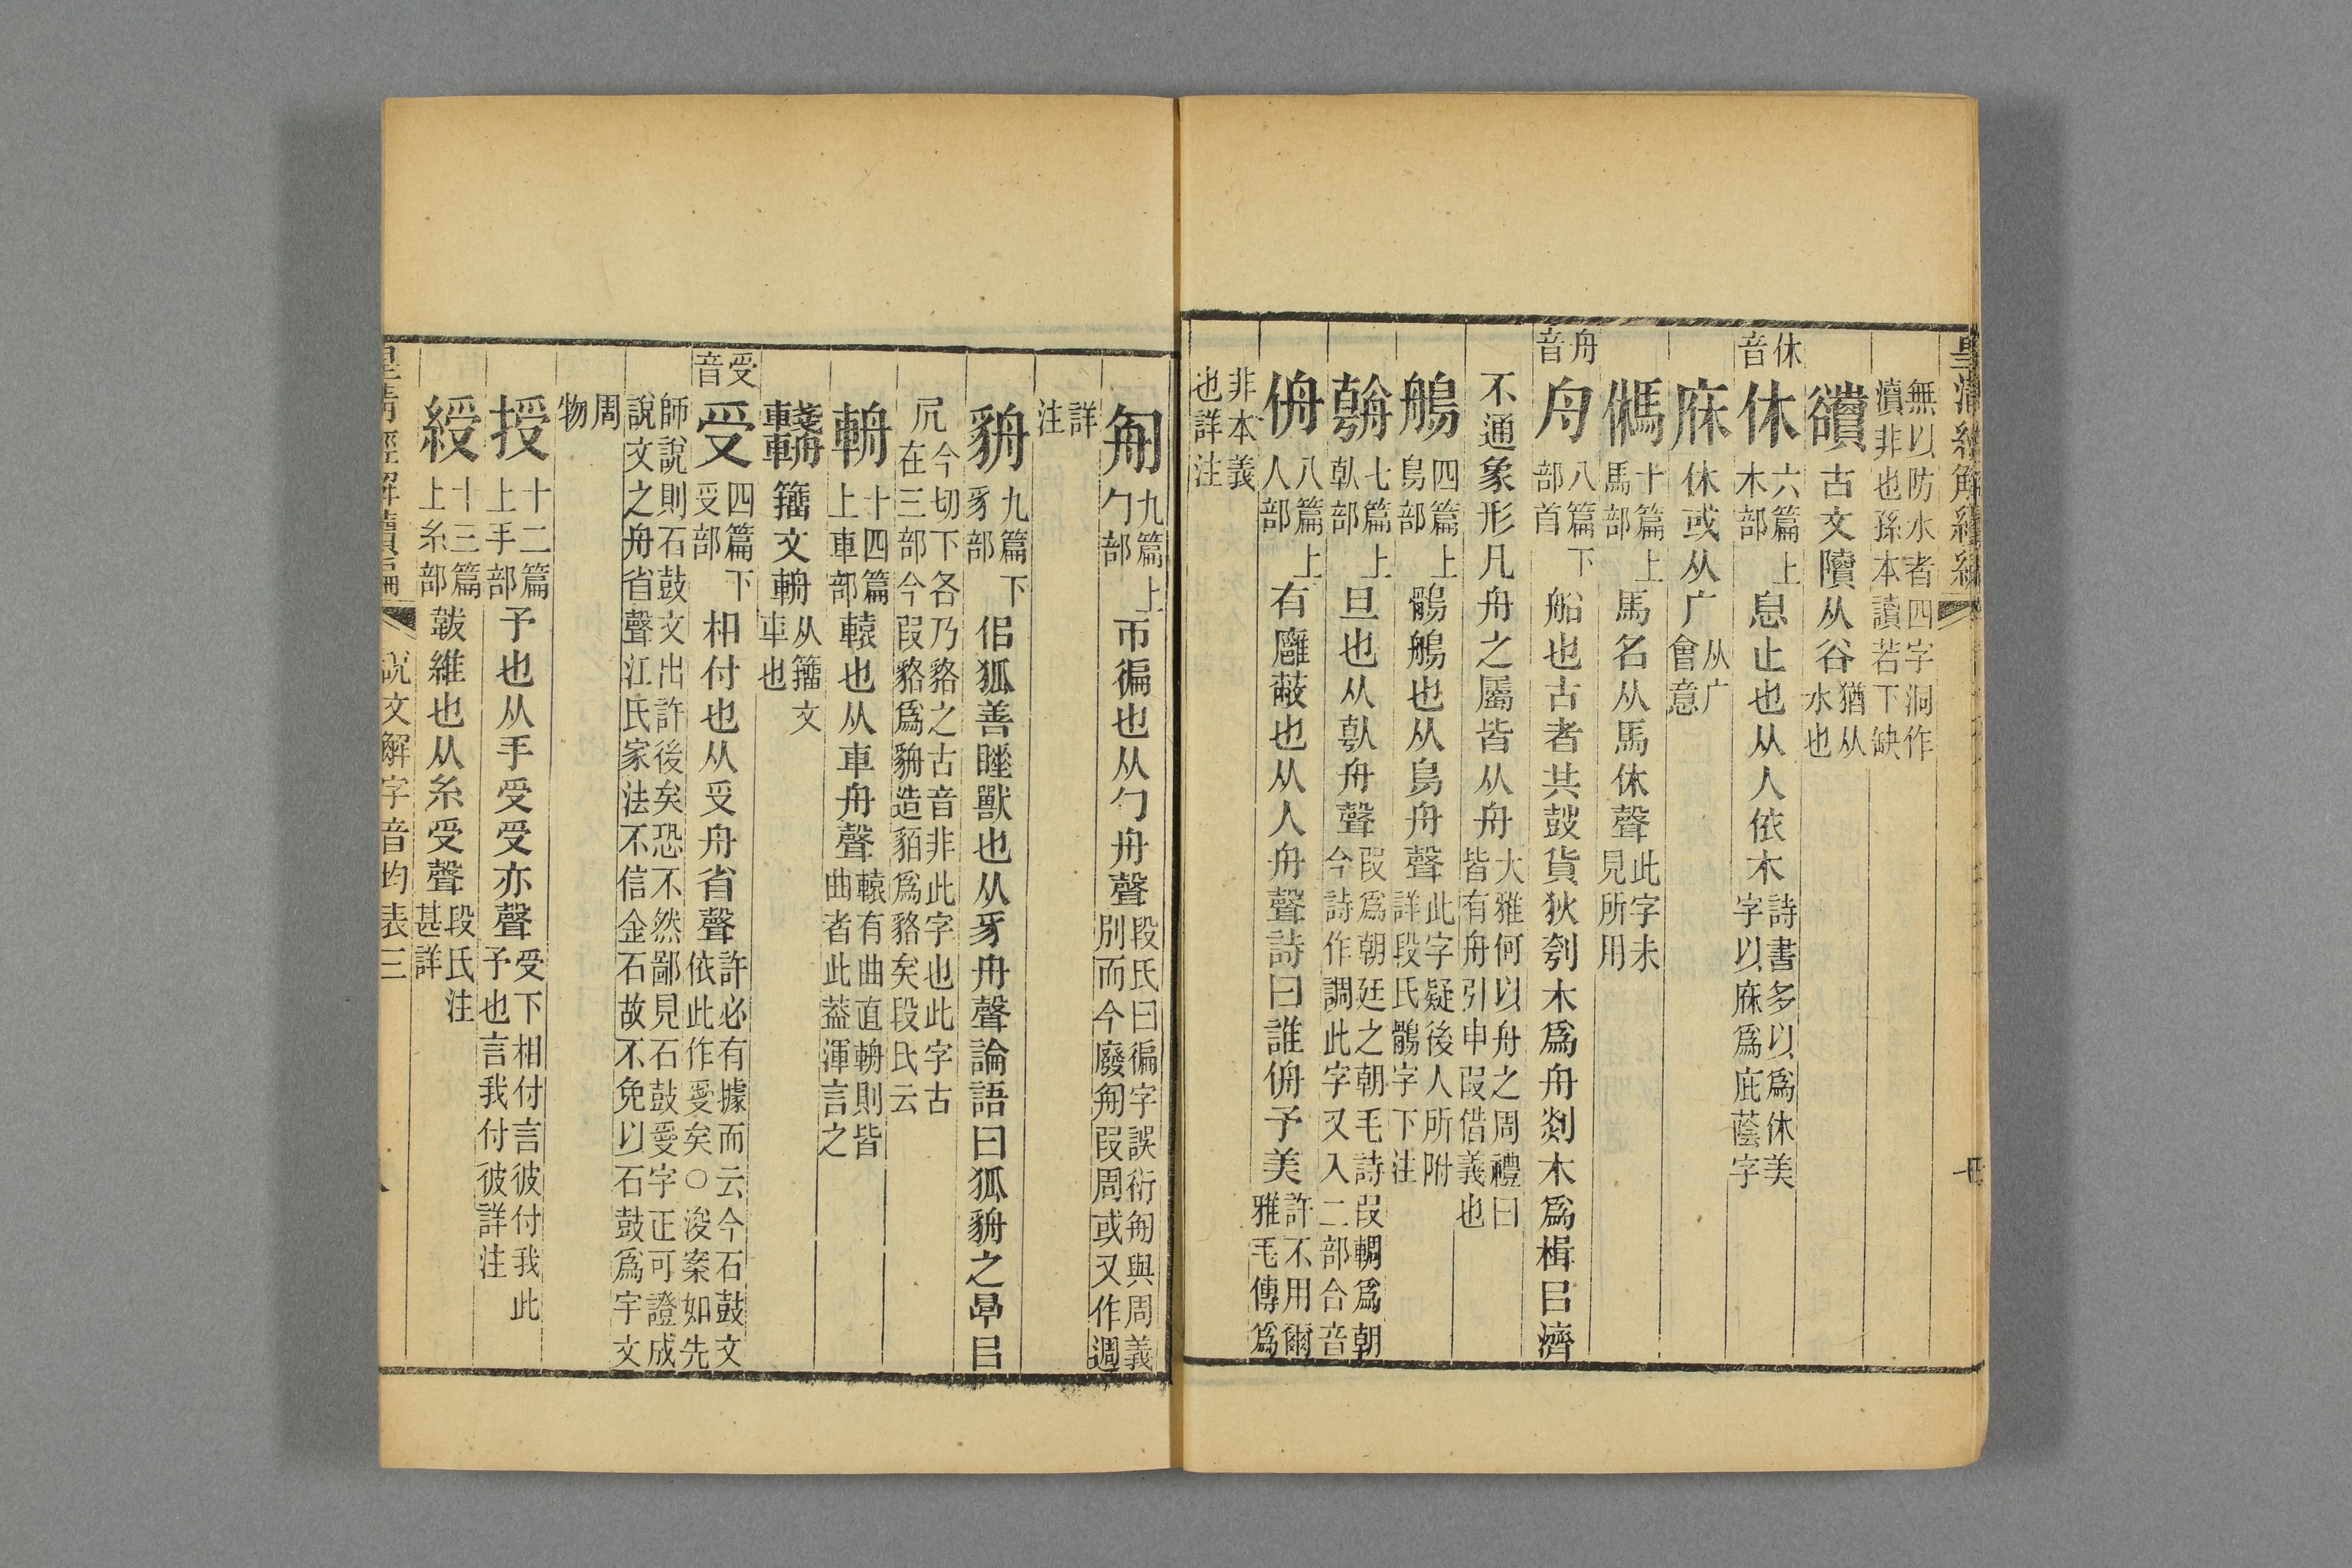 皇清經解續編
無以防水者四字洞作
瀆非也孫本讀若下缺
䜠古文隫从谷猶从
水也
休音
休六篇上木部息止也从人依木詩書多以爲休美
字以庥爲庇蔭字
庥休或从广从广
會意
䮌十篇上馬部馬名从馬休聲此字未
見所用
舟音
舟八篇下部首船也古者共鼓貨狄刳木爲舟剡木爲楫㠯濟
不通象形凡舟之屬皆从舟大雅何以舟之周禮曰
皆有舟引申叚借義也
鵃四篇上鳥部鶻鵃也从鳥舟聲此字疑後人所附
詳段氏鶻字下注
倝七篇上倝部旦也从倝舟聲叚爲朝廷之朝毛詩叚輖爲朝
今詩作調此字又入二部合音
侜八篇上人部有廱蔽也从人舟聲詩曰誰侜予美許不用爾
雅毛傳爲
非本義
也詳注
匊九篇上勹部帀徧也从勹舟聲段氏曰徧字誤衍匊與周義
別而今廢匊叚周或又作週
詳
注
貈九篇下豸部侣狐善睡獸也从豸舟聲論語曰狐貈之厚㠯
凥今切下各乃貉之古音非此字也此字古
在三部今叚貉爲貈造貊爲貉矣段氏云
輈十四篇上車部轅也从車舟聲轅有曲直輈則皆
曲者此葢渾言之
籒文輈从籒文
車也
受音
受四篇下𠬪部相付也从𠬪舟省聲許必有據而云今石鼓文
依此作受矣○浚案如先
師說則石鼓文出許後矣恐不然鄙見石鼓受字正可證成
說文之舟省聲江氏家法不信金石故不免以石鼓爲宇文
周
物
授十二篇上手部予也从手受受亦聲受下相付言彼付我此
予也言我付彼詳注
綬十三篇上糸部韍維也从糸受聲段氏注
甚詳
皇清經解續編 說文解字音均表三